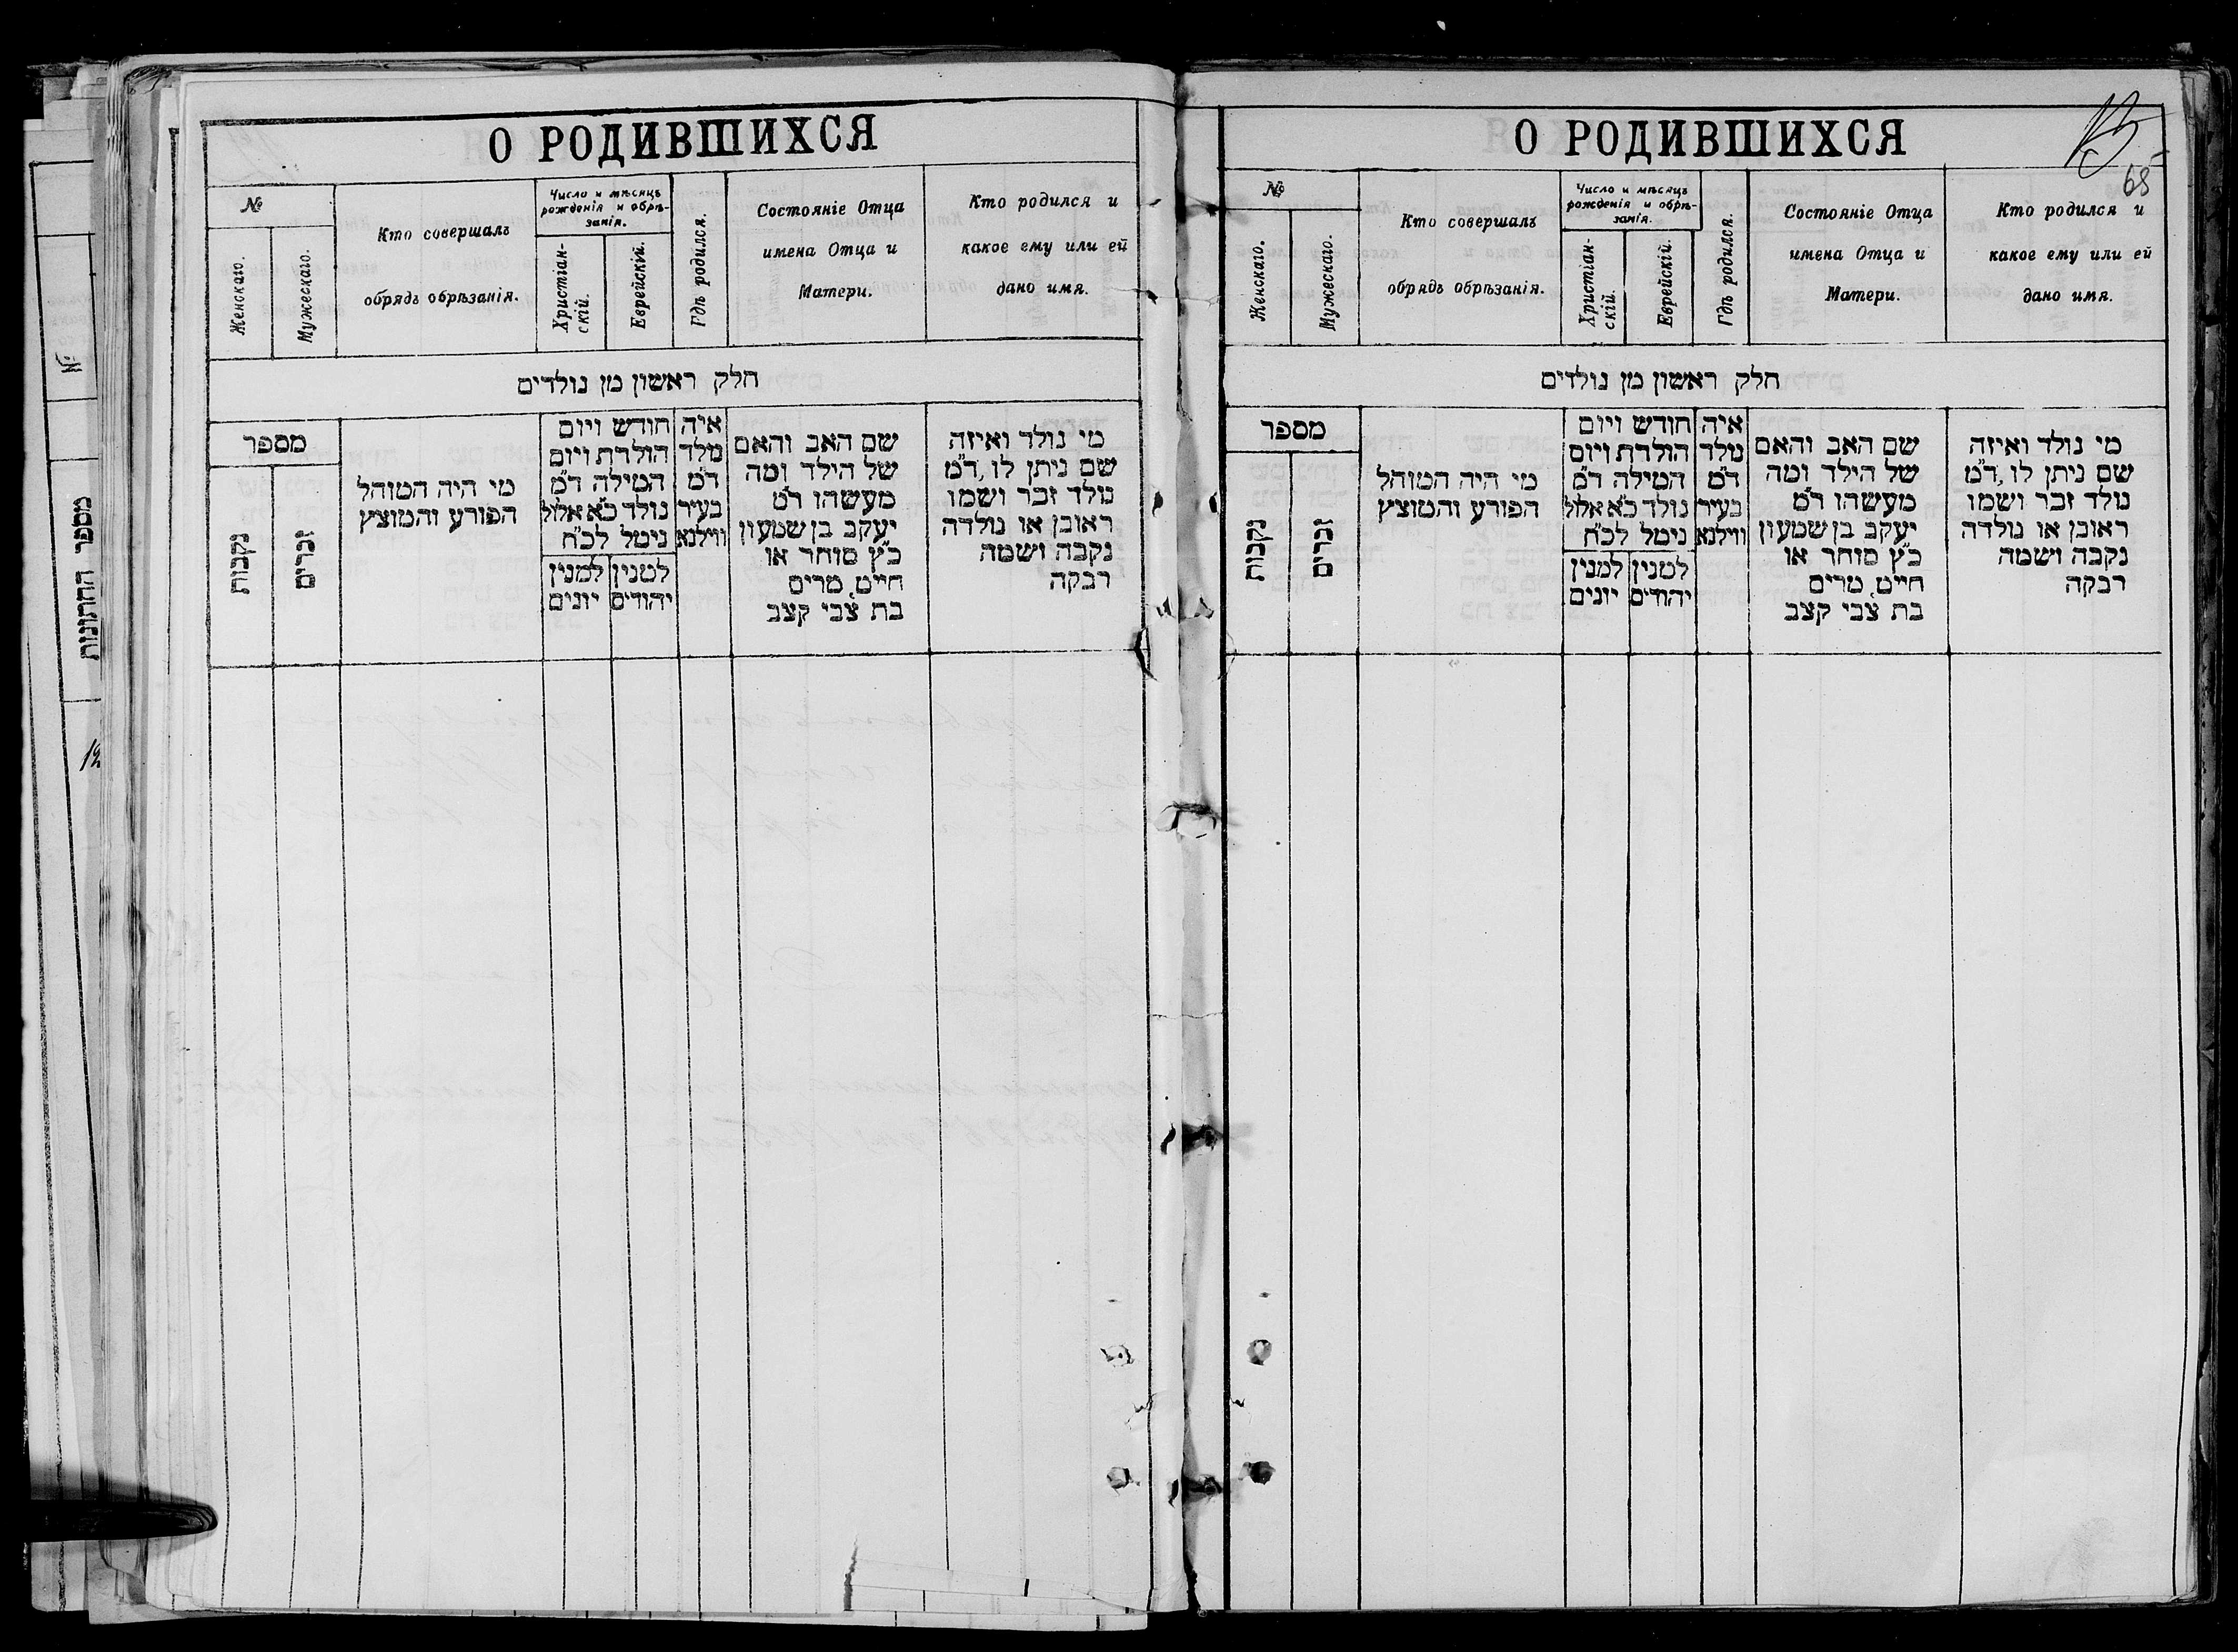 №
מספר החתונות
О РОДИВШИХСЯ
№
Женскаго.
Мужескаго.
Кто совершалъ
обрядъ обрѣзанія.
Число и мѣсяцъ
рожденія и обрѣ-
занія.
Христіан-
скій.
Еврейскій.
Гдѣ родился.
Состояніе Отца
имена Отца и
Матери.
Кто родился и
какое ему или ей
дано имя.
חלק ראשון מן נולדים
מספר
נקבות
זכרים
מי היה המוהל
הפורע והמוצץ
חודש ויום
הולדת ויום
המילה ד״מ
נולד כ״א אלול
נימל לכ״ח
למנין
יונים
למנין
יהודים
איה
נולד
ד״מ
בעיר
ווילנא
שם האב והאם
של הילד ומה
מעשהו ד״מ
יעקב בן שמעון
כ״ץ סוחר או
חייט, מרים
בת צבי קצב
מי נולד ואיזה
שם ניתן לו, ד״מ
נולד זכר ושמו
ראובן או נולדה
נקבה ושמה
רבקה
О РОДИВШИХСЯ
65
№
Женскаго.
Мужескаго.
Кто совершалъ
обрядъ обрѣзанія.
Число и мѣсяцъ
рожденія и обрѣ-
занія.
Христіан-
скій.
Еврейскій.
Гдѣ родился.
Состояніе Отца
имена Отца и
Матери.
Кто родился и
какое ему или ей
дано имя.
חלק ראשון מן נולדים
מספר
נקבות
זכרים
מי היה המוהל
הפורע והמוצץ
חודש ויום
הולדת ויום
המילה ד״מ
נולד כ״א אלול
נימל לכ״ח
למנין
יונים
למנין
יהודים
איה
נולד
ד״מ
בעיר
ווילנא
שם האב והאם
של הילד ומה
מעשהו ד״מ
יעקב בן שמעון
כ״ץ סוחר או
חייט, מרים
בת צבי קצב
מי נולד ואיזה
שם ניתן לו, ד״מ
נולד זכר ושמו
ראובן או נולדה
נקבה ושמה
רבקה